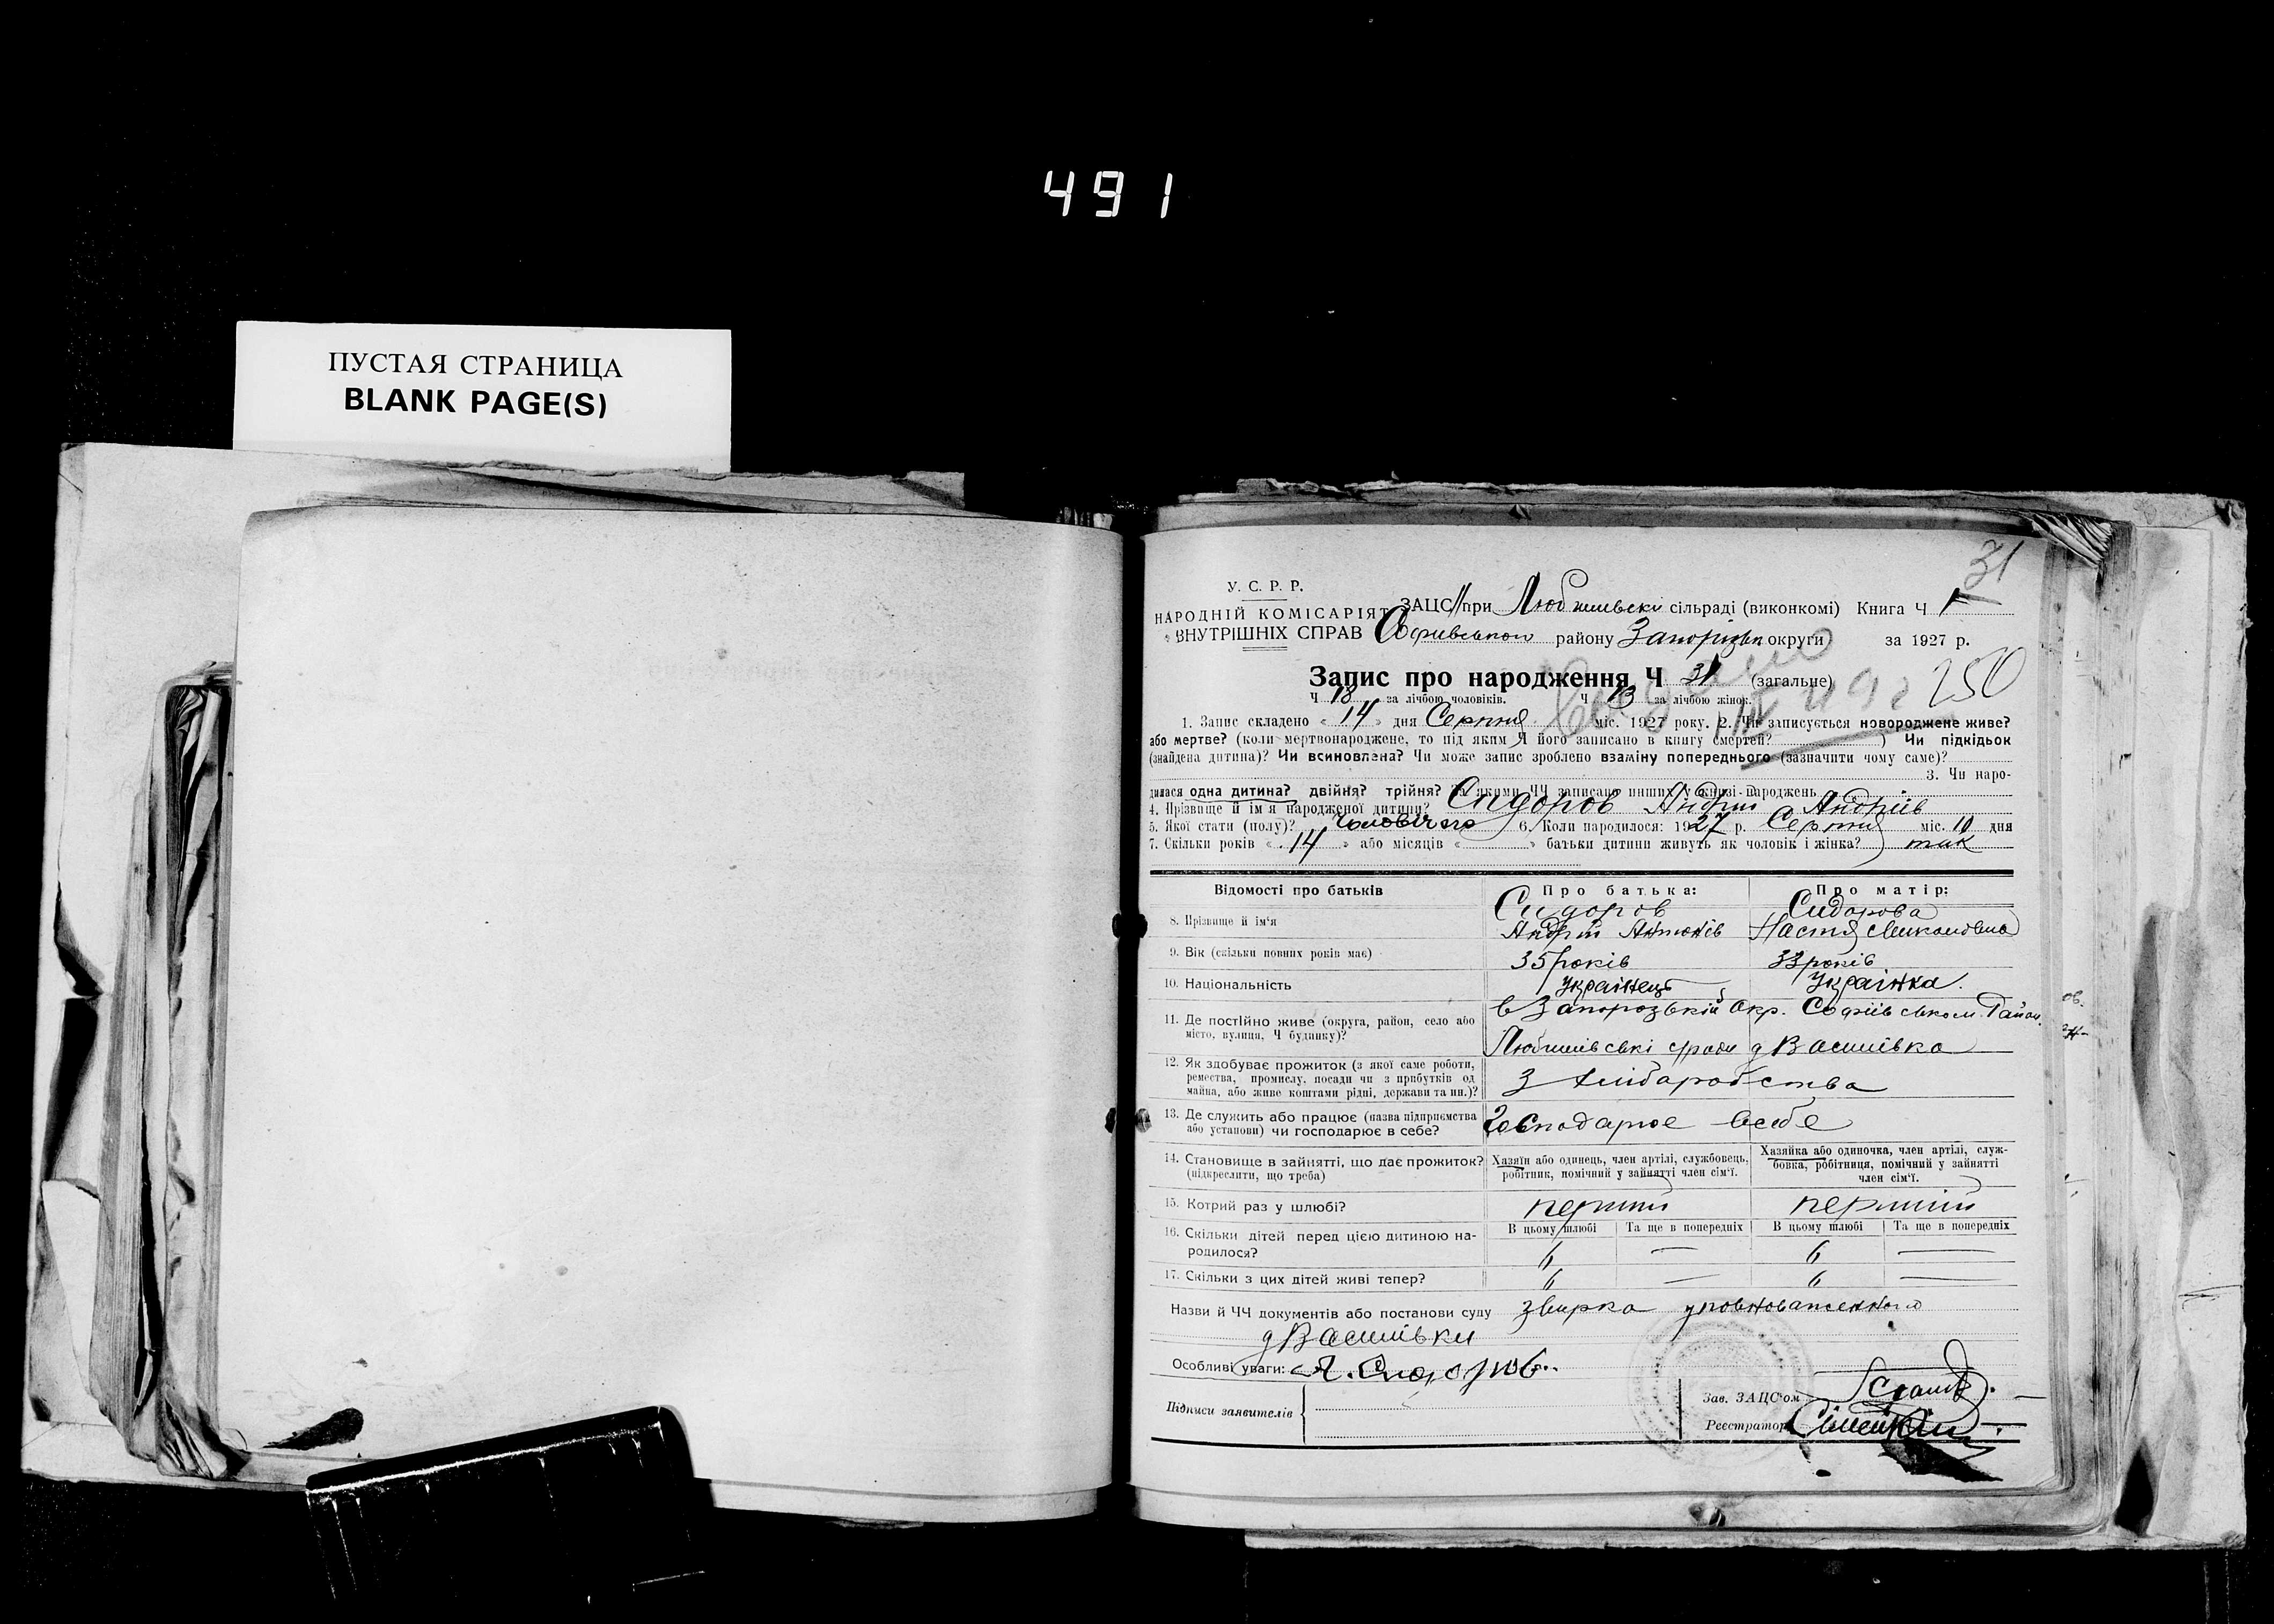 491
ПУСТАЯ СТРАНИЦА
BLANK PAGE(S)
31
У. С. Р. Р.
НАРОДНІЙ КОМІСАРІЯТ
ВНУТРІШНІХ СПРАВ
ЗАЦС при сільраді (виконкомі) Книга Ч 1
району округи за 1927 р.
Запис про народження Ч 31 (загальне) 250
Ч 18 за лічбою чоловіків. Ч 13 за лічбою жінок.
1. Запис складено « 14 » дня Серпня міс. 1927 року. 2. Чи записується новороджене живе?
або мертве? (коли мертвонароджене, то під яким Ч його записано в книгу смертей? ) Чи підкідьок
(знайдена дитина)? Чи всиновлена? Чи може запис зроблено взаміну попереднього (зазначити чому саме)?
3. Чи наро-
дилася одна дитина? двійня? трійня? За якими ЧЧ записано инших у книзі народжень
4. Прізвище й ім'я народженої дитини? Сидоров Андрій Андріїв
5. Якої стати (полу)? Чоловічого 6. Коли народилося: 1927 р. Серпня міс. 10 дня
7. Скільки років « 14 » або місяців « » батьки дитини живуть як чоловік і жінка? так
Відомості про батьків Про батька: Про матір:
8. Прізвище й ім'я Сидоров Сидорова
Андрій Антонів Настя Миколовна
9. Вік (скільки повних років має) 35 років 33 років
10. Національність Українець Українка.
11. Де постійно живе (округа, район, село або місто, вулиця, Ч будинку)? в Запорозькій Окр. Софіївськом. Район.
Любимівські с/ради д Василівка
12. Як здобуває прожиток (з якої саме роботи, ремества, промислу, посади чи з прибутків од майна, або живе коштами рідні, держави та ин.)? З хліборобства
13. Де служить або працює (назва підприємства або установи) чи господарює в себе? Господарює в себе
14. Становище в зайнятті, що дає прожиток? (підкреслити, що треба) Хазяїн або одинець, член артілі, службовець, робітник, помічний у зайнятті член сім'ї. Хазяйка або одиночка, член артілі, служ-бовка, робітниця, помічний у зайнятті член сім'ї.
15. Котрий раз у шлюбі? перший перший
В цьому шлюбі Та ще в попередніх В цьому шлюбі Та ще в попередніх
16. Скільки дітей перед цією дитиною на-родилося? 6 — 6 —
17. Скільки з цих дітей живі тепер? 6 — 6 —
Назви й ЧЧ документів або постанови суду уповноваженного
д Василівки
Особливі уваги:
Підписи заявителів
Зав. ЗАЦС'ом
Реєстратор